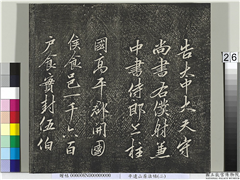 告太中大夫守
尚書右僕射兼
中書侍郎上柱
國高平郡開國
侯食邑一千六百
戶食實封伍伯
26